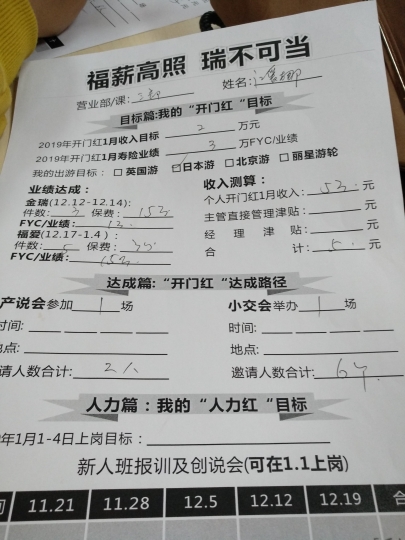 福薪高照 瑞不可当
营业部/课: 姓名:
目标篇:我的“开门红”目标
2019年开门红1月收入目标 2 万元
2019年开门红1月寿险业绩 3 万FYC/业绩
我的出游目标: □英国游 ☑日本游 □北京游 □丽星游轮
业绩达成: 收入测算:
金瑞(12.12-12.14): 个人开门红1月收入: 元
件数: 3 保费: 主管直接管理津贴: 元
FYC/业绩: 经理津贴: 元
福爱(12.17-1.4): 合计: 元
件数: 5 保费:
FYC/业绩:
达成篇:“开门红”达成路径
产说会参加 1 场 小交会举办 1 场
时间: 时间:
地点: 地点:
请人数合计: 2人 邀请人数合计: 6个
人力篇:我的“人力红”目标
年1月1-4日上岗目标:
新人班报训及创说会(可在1.1上岗)
11.21 11.28 12.5 12.12 12.19 合